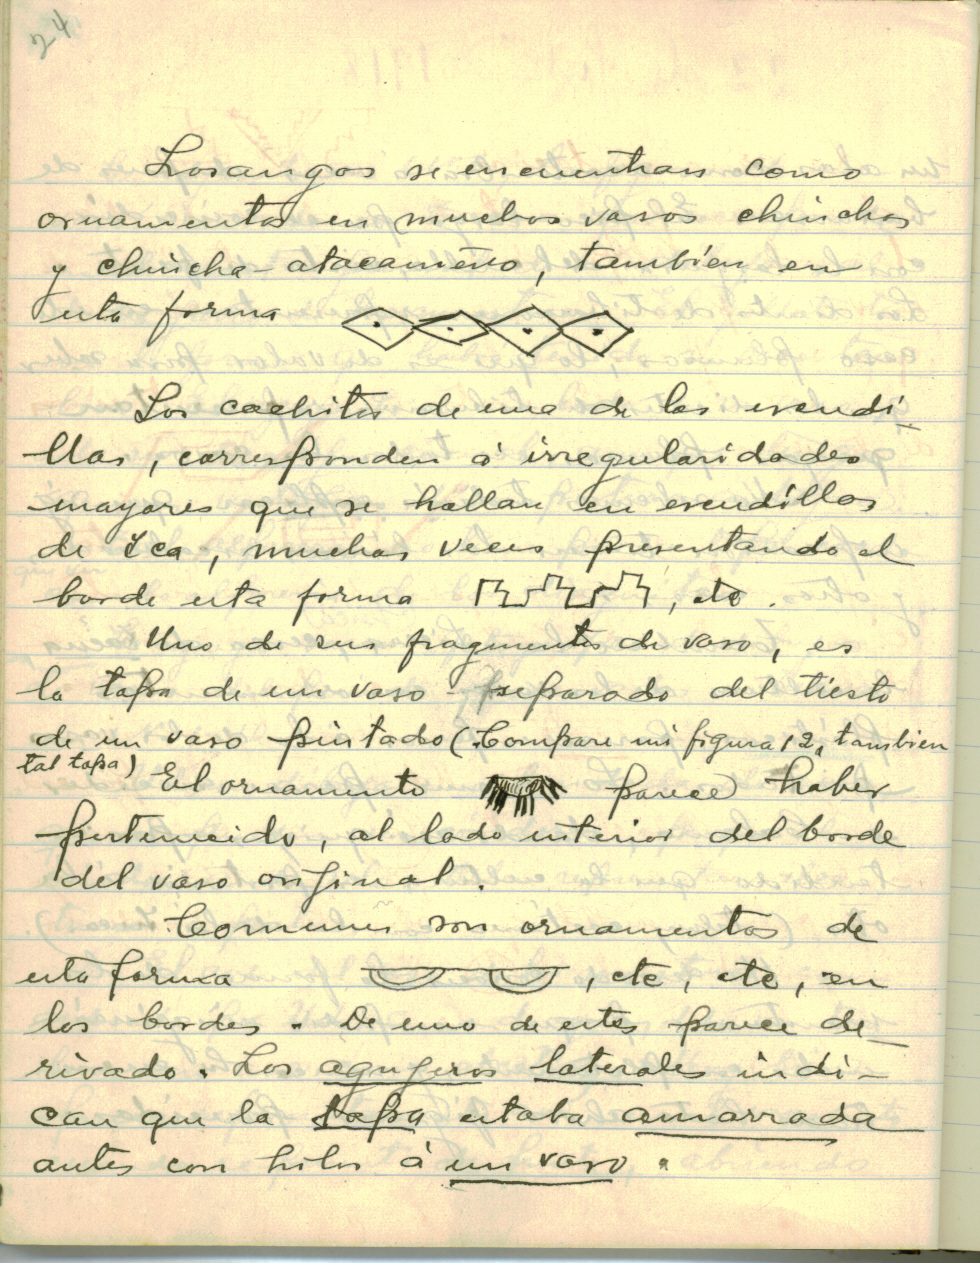 24
Losangos se encuentran como
ornamentos en muchos vasos chinchas
y chincha-atacameño, también en
esta forma
Los cachitos de una de las escudi-
llas, corresponden á irregularidades
mayores que se hallan en escudillas
de Ica, muchas veces presentando el
borde esta forma , etc.
Uno de sus fragmentos de vaso, es
la tapa de un vaso separado del tiesto
de un vaso pintado (Compare mi figura 12, tambien
tal tapa)
El ornamento parece haber
pertenecido, al lado interior del borde
del vaso original.
Comunes son ornamentos de
esta forma , etc, etc, en
los bordes. De uno de estos parece de-
rivado. Los agugeros laterales indi-
can que la tapa estaba amarrada
antes con hilos á un vaso.